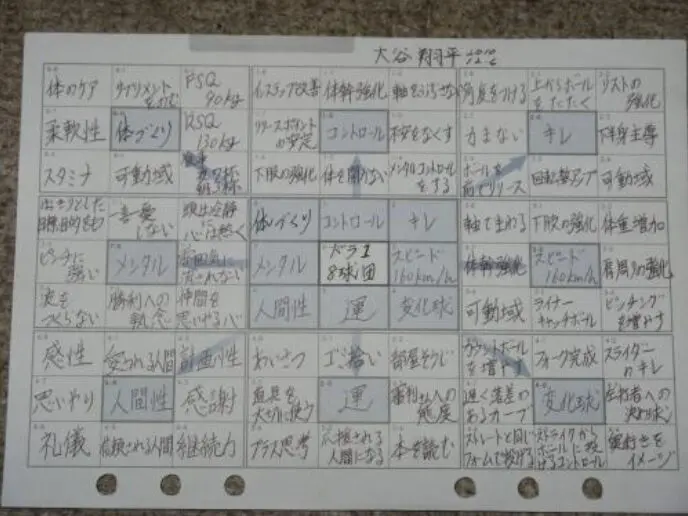 大谷 翔平 2010 12.6
体のケア サプリメントをのむ FSQ 90kg インステップ改善 体幹強化 軸をぶらさない 角度をつける 上からボールをたたく リストの強化
柔軟性 体づくり RSQ 130kg リリースポイントの安定 コントロール 不安をなくす 力まない キレ 下半身主導
スタミナ 可動域 食事 夜7杯 朝3杯 下肢の強化 体を開かない メンタルコントロールをする ボールを前でリリース 回転数アップ 可動域
はっきりとした目標、目的をもつ 一喜一憂しない 頭は冷静に心は熱く 体づくり コントロール キレ 軸でまわる 下肢の強化 体重増加
ピンチに強い メンタル 雰囲気に流されない メンタル ドラ1 8球団 スピード 160km/h 体幹強化 スピード 160km/h 肩周りの強化
波をつくらない 勝利への執念 仲間を思いやる心 人間性 運 変化球 可動域 ライナーキャッチボール ピッチングを増やす
感性 愛される人間 計画性 あいさつ ゴミ拾い 部屋そうじ カウントボールを増やす フォーク完成 スライダーのキレ
思いやり 人間性 感謝 道具を大切に使う 運 審判さんへの態度 遅く落差のあるカーブ 変化球 左打者への決め球
礼儀 信頼される人間 継続力 プラス思考 応援される人間になる 本を読む ストレートと同じフォームで投げる ストライクからボールに投げるコントロール 奥行きをイメージ